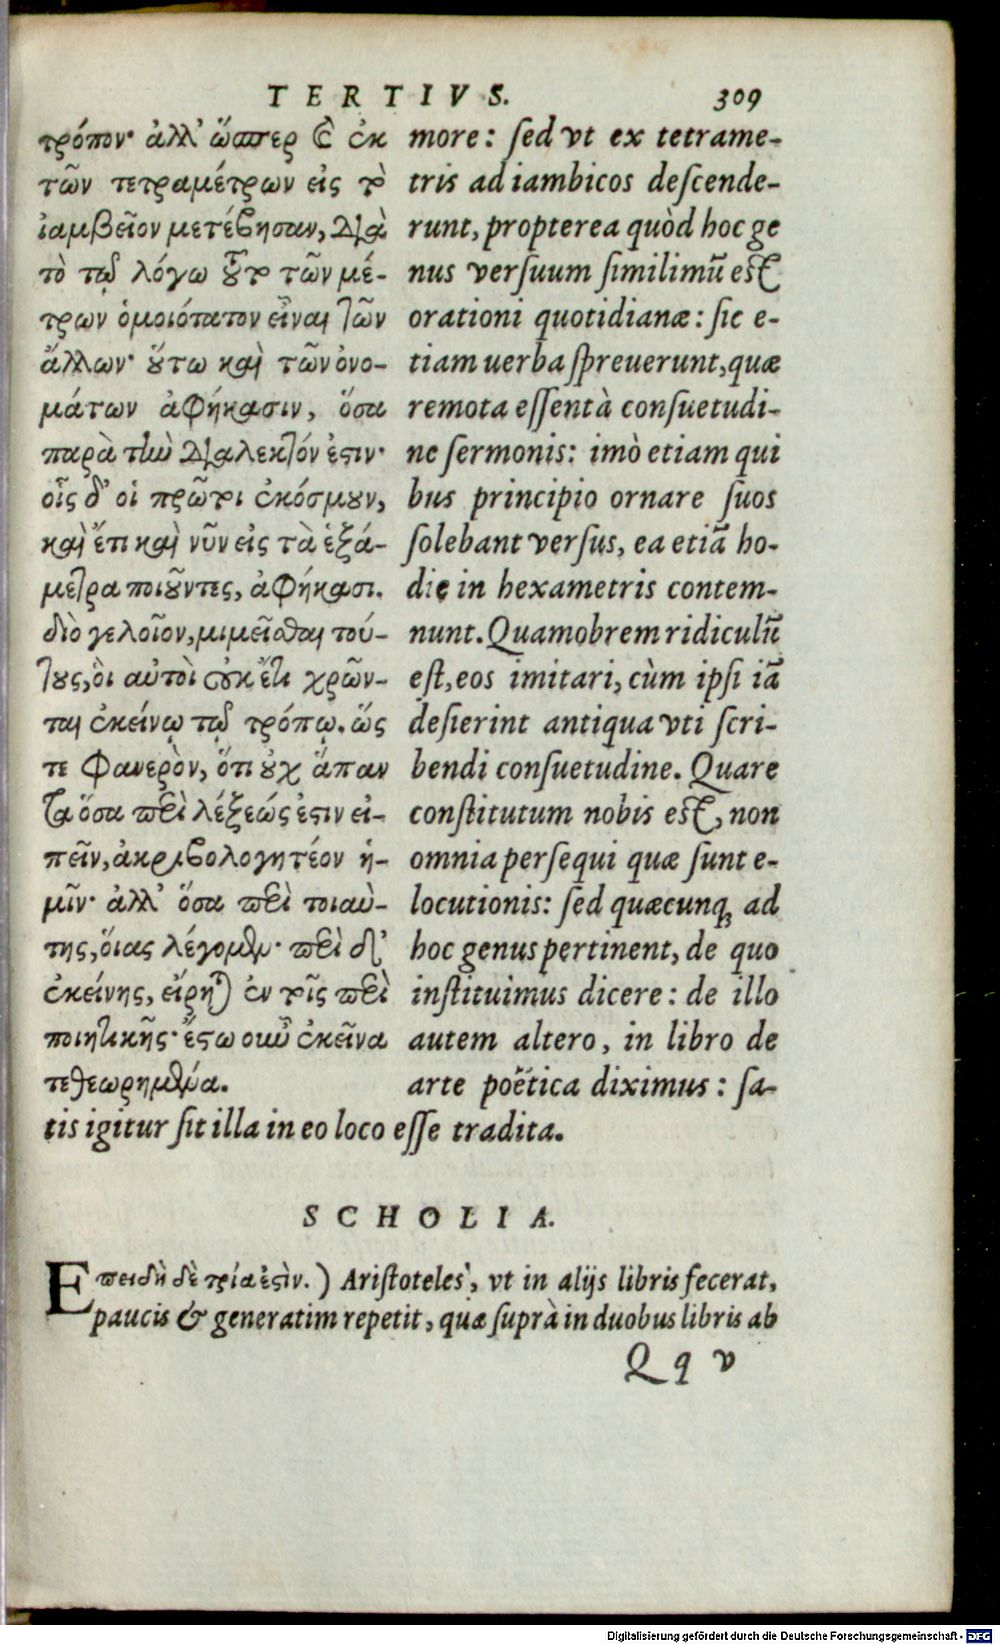 TERTIVS. 309
τρόπον· ἀλλ' ὥσπερ καὶ ἐκ
τῶν τετραμέτρων εἰς τὸ
ἰαμβεῖον μετέβησαν, διὰ
τὸ τῷ λόγῳ τοῦτο τῶν μέ-
τρων ὁμοιότατον εἶναι τῶν
ἄλλων· οὕτω καὶ τῶν ὀνο-
μάτων ἀφήκασιν, ὅσα
παρὰ τὴν διάλεκτόν ἐστιν·
οἷς δ' οἱ πρῶτοι ἐκόσμουν,
καὶ ἔτι καὶ νῦν εἰς τὰ ἑξά-
μετρα ποιοῦντες, ἀφήκασι.
διὸ γελοῖον, μιμεῖσθαι τού-
τους, οἳ αὐτοὶ οὐκ ἔτι χρῶν-
ται ἐκείνῳ τῷ τρόπῳ. ὥς
τε φανερὸν, ὅτι οὐχ ἅπαν
τα ὅσα περὶ λέξεώς ἐστιν εἰ-
πεῖν, ἀκριβολογητέον ἡ-
μῖν· ἀλλ' ὅσα περὶ τοιαύ-
της, οἵας λέγομεν· περὶ δ'
ἐκείνης, εἴρηται ἐν τοῖς περὶ
ποιητικῆς· ἔστω οὖν ἐκεῖνα
τεθεωρημένα.
more: sed vt ex tetrame-
tris ad iambicos descende-
runt, propterea quòd hoc ge
nus versuum similimũ est
orationi quotidianæ: sic e-
tiam uerba spreuerunt, quæ
remota essent à consuetudi-
ne sermonis: imò etiam qui
bus principio ornare suos
solebant versus, ea etiã ho-
die in hexametris contem-
nunt. Quamobrem ridiculũ
est, eos imitari, cùm ipsi iã
desierint antiqua vti scri-
bendi consuetudine. Quare
constitutum nobis est, non
omnia persequi quæ sunt e-
locutionis: sed quæcunq; ad
hoc genus pertinent, de quo
instituimus dicere: de illo
autem altero, in libro de
arte poëtica diximus: sa-
tis igitur sit illa in eo loco esse tradita.
SCHOLIA.
Επειδὴ δὲ τρία ἐστὶν.) Aristoteles, vt in alijs libris fecerat,
paucis & generatim repetit, quæ suprà in duobus libris ab
Qq v
Digitalisierung gefördert durch die Deutsche Forschungsgemeinschaft - DFG